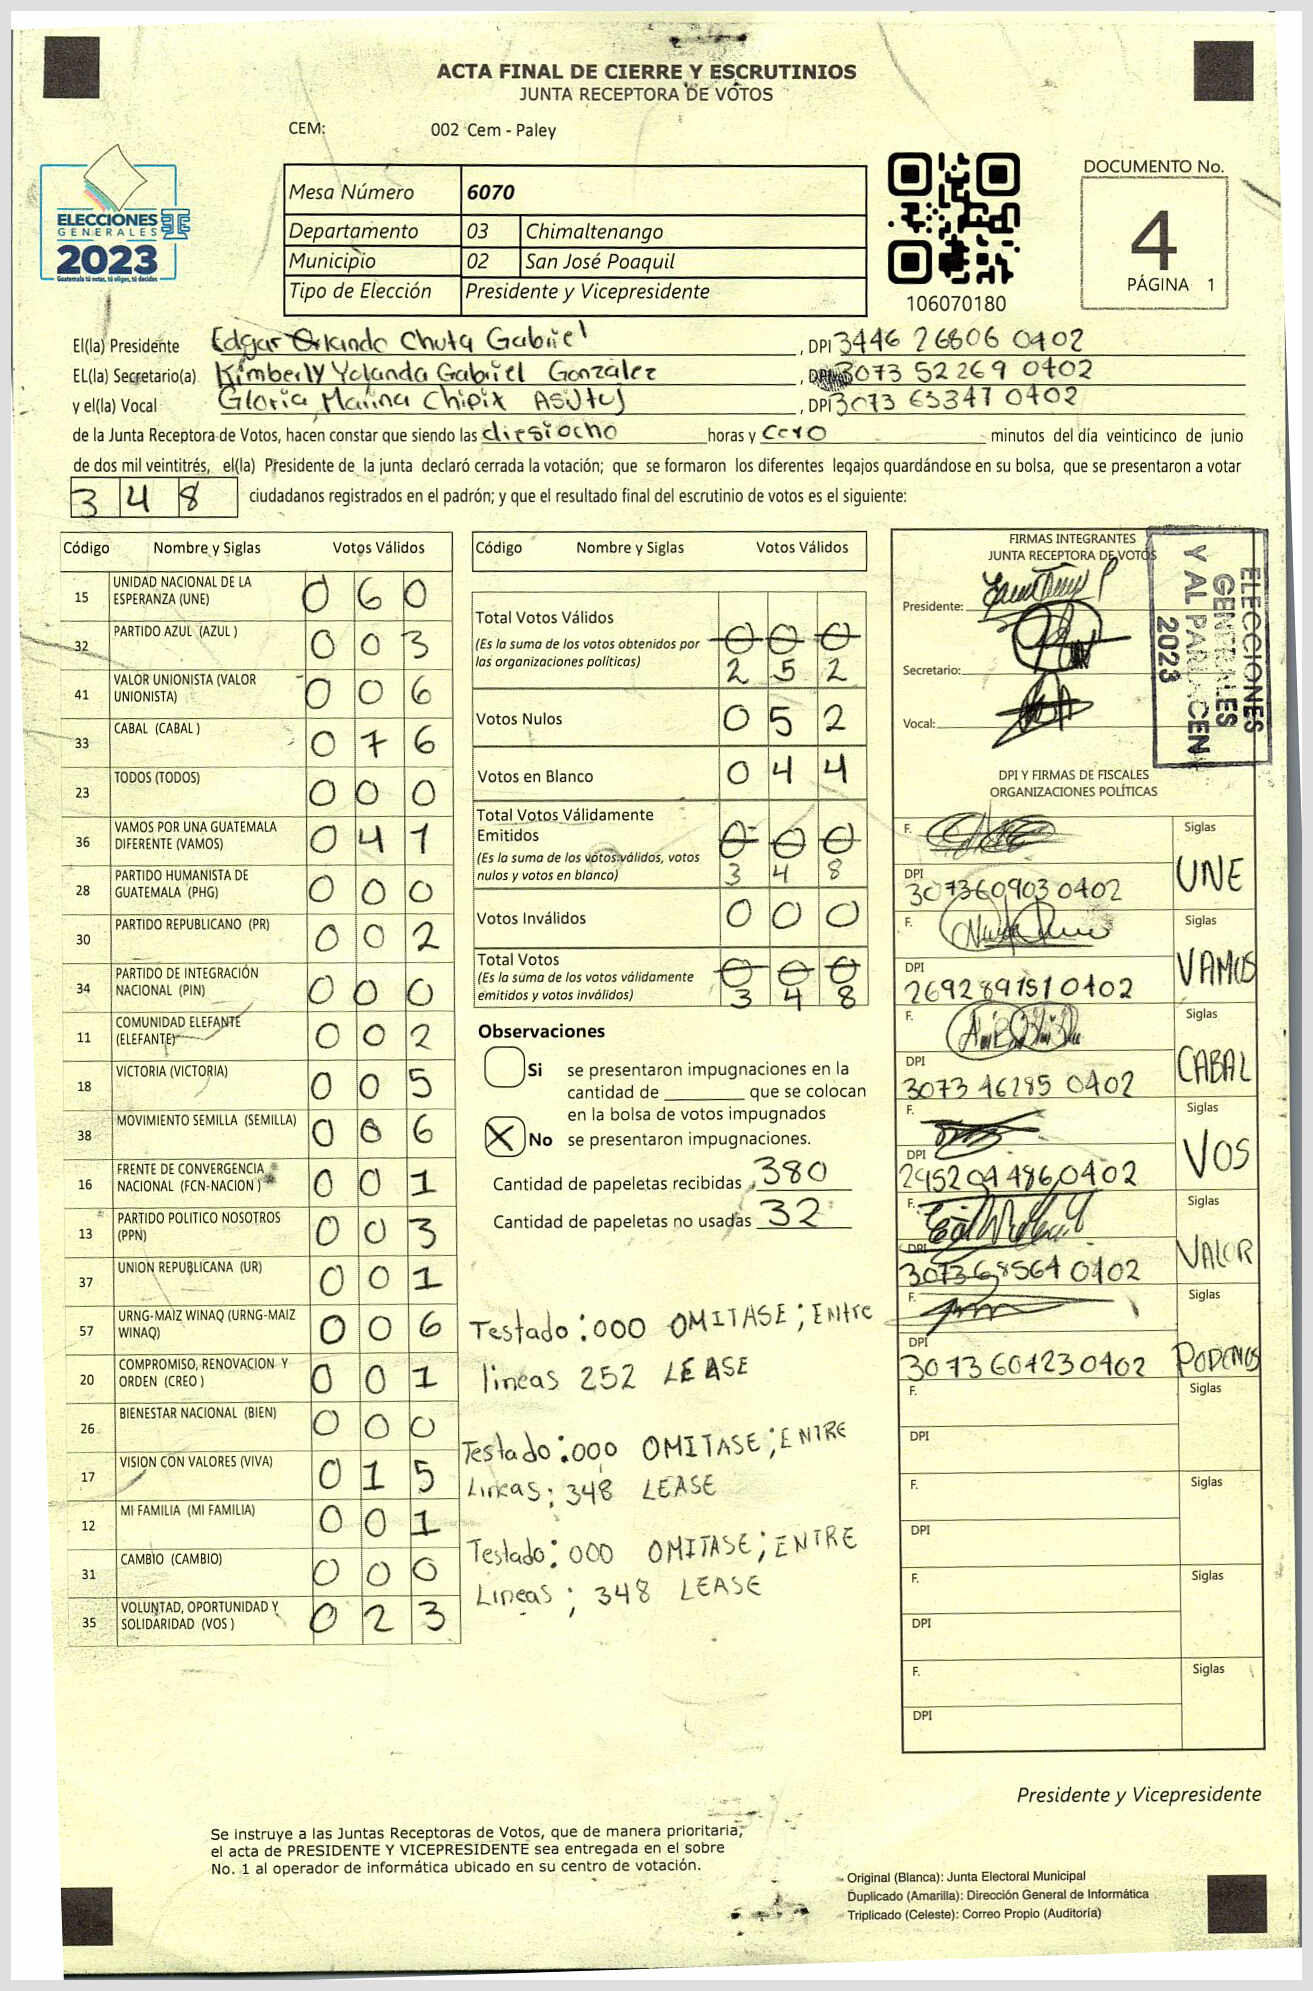 ACTA FINAL DE CIERRE Y ESCRUTINIOS
JUNTA RECEPTORA DE VOTOS
CEM: 002 Cem - Paley
ELECCIONES
GENERALES
2023
Guatemala tú votas, tú eliges, tú decides
Mesa Número 6070
Departamento 03 Chimaltenango
Municipio 02 San José Poaquil
Tipo de Elección Presidente y Vicepresidente
106070180
DOCUMENTO No.
4
PÁGINA 1
El(la) Presidente Edgar Orlando Chuta Gabriel, DPI 3446 26806 0402
EL(la) Secretario(a) Kimberly Yolanda Gabriel Gonzalez, DPI 3073 52269 0402
y el(la) Vocal Gloria Marina Chipix, DPI 3073 63347 0402
de la Junta Receptora de Votos, hacen constar que siendo las diesiocho horas y cero minutos del día veinticinco de junio
de dos mil veintitrés, el(la) Presidente de la junta declaró cerrada la votación; que se formaron los diferentes legajos guardándose en su bolsa, que se presentaron a votar
3 4 8 ciudadanos registrados en el padrón; y que el resultado final del escrutinio de votos es el siguiente:
Código Nombre y Siglas Votos Válidos
15 UNIDAD NACIONAL DE LA ESPERANZA (UNE) 0 6 0
32 PARTIDO AZUL (AZUL ) 0 0 3
41 VALOR UNIONISTA (VALOR UNIONISTA) 0 0 6
33 CABAL (CABAL ) 0 7 6
23 TODOS (TODOS) 0 0 0
36 VAMOS POR UNA GUATEMALA DIFERENTE (VAMOS) 0 4 1
28 PARTIDO HUMANISTA DE GUATEMALA (PHG) 0 0 0
30 PARTIDO REPUBLICANO (PR) 0 0 2
34 PARTIDO DE INTEGRACIÓN NACIONAL (PIN) 0 0 0
11 COMUNIDAD ELEFANTE (ELEFANTE) 0 0 2
18 VICTORIA (VICTORIA) 0 0 5
38 MOVIMIENTO SEMILLA (SEMILLA) 0 0 6
16 FRENTE DE CONVERGENCIA NACIONAL (FCN-NACION ) 0 0 1
13 PARTIDO POLITICO NOSOTROS (PPN) 0 0 3
37 UNION REPUBLICANA (UR) 0 0 1
57 URNG-MAIZ WINAQ (URNG-MAIZ WINAQ) 0 0 6
20 COMPROMISO, RENOVACION Y ORDEN (CREO ) 0 0 1
26 BIENESTAR NACIONAL (BIEN) 0 0 0
17 VISION CON VALORES (VIVA) 0 1 5
12 MI FAMILIA (MI FAMILIA) 0 0 1
31 CAMBIO (CAMBIO) 0 0 0
35 VOLUNTAD, OPORTUNIDAD Y SOLIDARIDAD (VOS ) 0 2 3
Código Nombre y Siglas Votos Válidos
Total Votos Válidos 0 0 0
(Es la suma de los votos obtenidos por
las organizaciones políticas) 2 5 2
Votos Nulos 0 5 2
Votos en Blanco 0 4 4
Total Votos Válidamente
Emitidos 0 0 0
(Es la suma de los votos válidos, votos
nulos y votos en blanco) 3 4 8
Votos Inválidos 0 0 0
Total Votos 0 0 0
(Es la suma de los votos válidamente
emitidos y votos inválidos) 3 4 8
Observaciones
Si se presentaron impugnaciones en la
cantidad de ________ que se colocan
en la bolsa de votos impugnados
X No se presentaron impugnaciones.
Cantidad de papeletas recibidas 380
Cantidad de papeletas no usadas 32
Testado: 000 OMITASE; Entre
lineas 252 LEASE
Testado: 000 OMITASE; ENTRE
Lineas; 348 LEASE
Testado: 000 OMITASE; ENTRE
Lineas; 348 LEASE
FIRMAS INTEGRANTES
JUNTA RECEPTORA DE VOTOS
Presidente:
Secretario:
Vocal:
ELECCIONES
GENERALES
Y AL PARLACEN
2023
DPI Y FIRMAS DE FISCALES
ORGANIZACIONES POLÍTICAS
F. Siglas UNE
DPI 3073609030402
F. Siglas VAMOS
DPI 2692897510402
F. Siglas CABAL
DPI 3073 46285 0402
F. Siglas VOS
DPI 2952044860402
F. Siglas VALOR
DPI 3073685640402
F. Siglas PODEMOS
DPI 3073604230402
F. Siglas
DPI
F. Siglas
DPI
F. Siglas
DPI
F. Siglas
DPI
Presidente y Vicepresidente
Se instruye a las Juntas Receptoras de Votos, que de manera prioritaria,
el acta de PRESIDENTE Y VICEPRESIDENTE sea entregada en el sobre
No. 1 al operador de informática ubicado en su centro de votación.
Original (Blanca): Junta Electoral Municipal
Duplicado (Amarilla): Dirección General de Informática
Triplicado (Celeste): Correo Propio (Auditoría)